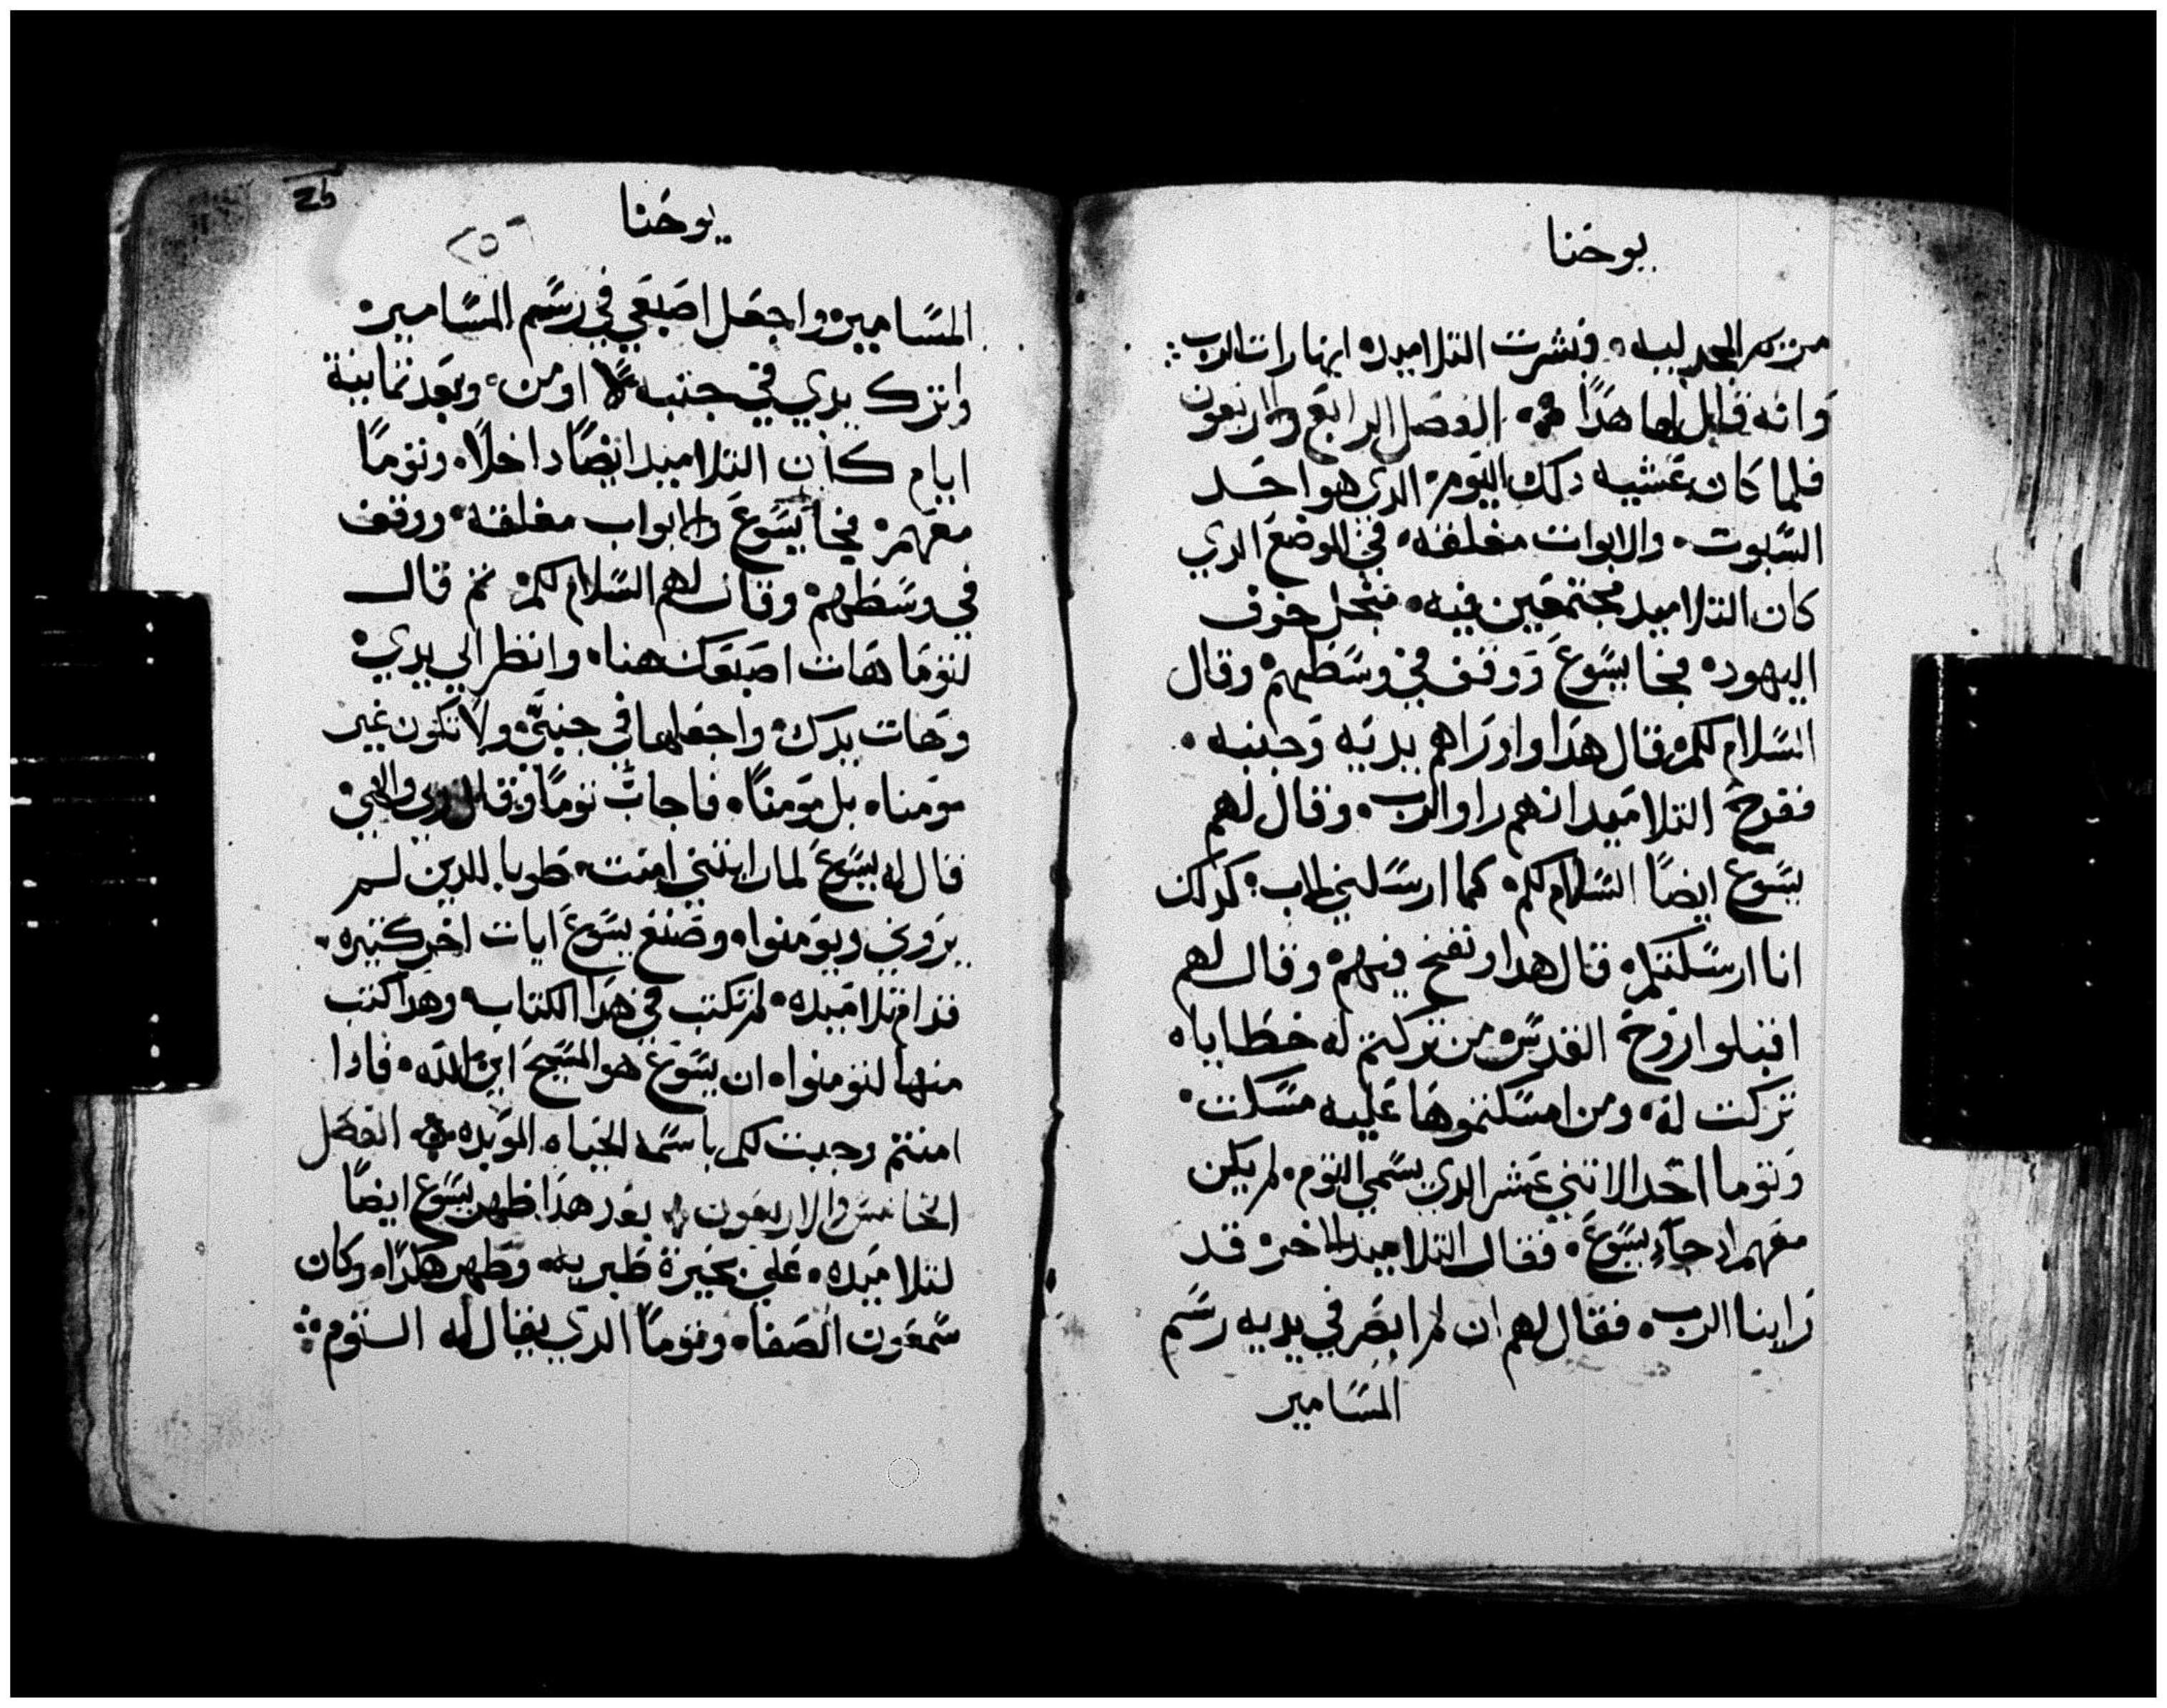 يوحنا
مريم المجدلييه فبشرت التلاميده انها رات الرب
وانه قال لها هدا الفصل الرابع والاربعون
فلما كان عشيه دلك اليوم الدي هو احد
السبوت والابواب مغلقه في الموضع الدي
كان التلاميد مجتمعين فيه منجل خوف
اليهود فجا يسوع ووقف في وسطهم وقال
السلام لكم قال هدا واوراهم يديه وجنبه
ففرح التلاميد انهم راوا الرب وقال لهم
يسوع ايضا السلام لكم كما ارسلني الاب كدلك
انا ارسلتكم قال هدا ونفخ فيهم وقال لهم
اقبلوا روح القدس من تركتم له خطاياه
تركت له ومن امسكتموها عليه مسكت
وتوما احد الاتني عشر الدي يسمي التوم لم يكن
معهم اد جاء يسوع فقال التلاميد الاخر قد
راينا الرب فقال لهم ان لم ابصر في يديه رسم
المسامير
يوحنا
٢٥٦
المسامير واجعل اصبعي في رسم المسامير
واترك يدي في جنبه لا اومن وبعد تمانية
ايام كان التلاميد ايضا داخلا وتوما
معهم فجا يسوع والابواب مغلقه ووقف
في وسطهم وقال لهم السلام لكم تم قال
لتوما هات اصبعك هنا وانظر الي يدي
وهات يدك واجعلها في جنبي ولا تكون غير
مومنا بل مومنا فاجاب توما وقال ربي والاهي
قال له يسوع لما رايتني امنت طوبا للدين لم
يروني ويومنوا وصنع يسوع ايات اخر كتيره
قدام تلاميده لم تكتب في هدا الكتاب وهدا كتب
منها لتومنوا ان يسوع هو المسيح ابن الله فادا
امنتم وجبت لكم باسمه الحياه الموبده الفصل
الخامس والاربعون بعد هدا ظهر يسوع ايضا
لتلاميده علي بحيرة طبريه وظهر هكدا وكان
سمعون الصفا وتوما الدي يقال له التوم